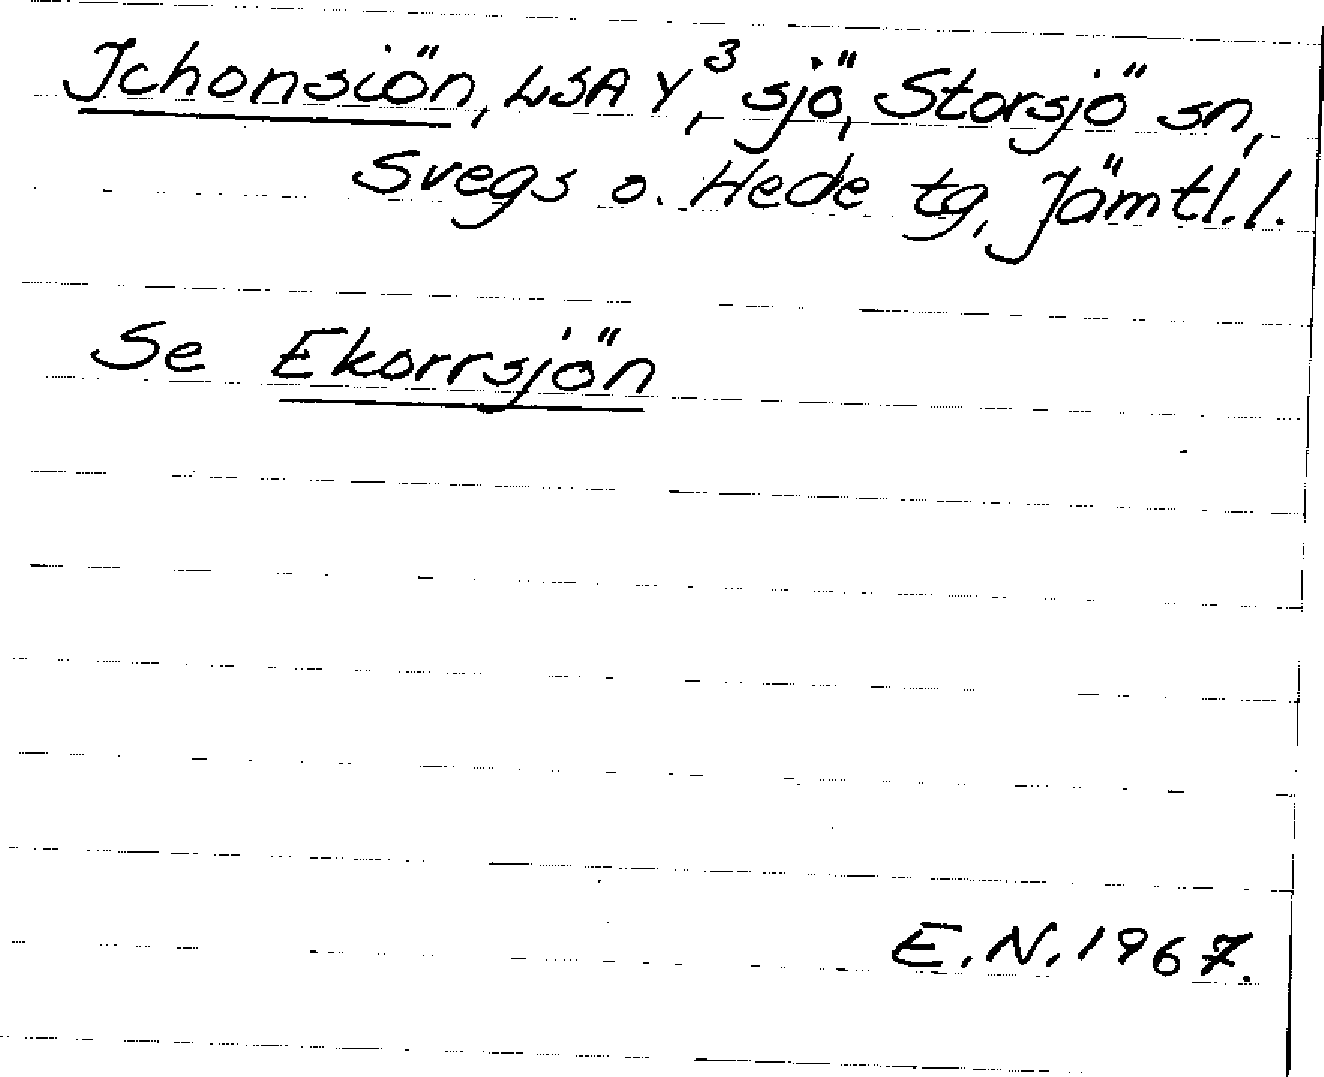 Jchonsiön, LSA Y³, sjö, Storsjö sn,
Svegs o. Hede tg, Jämtl.l.
Se Ekorrsjön
E.N. 1967.